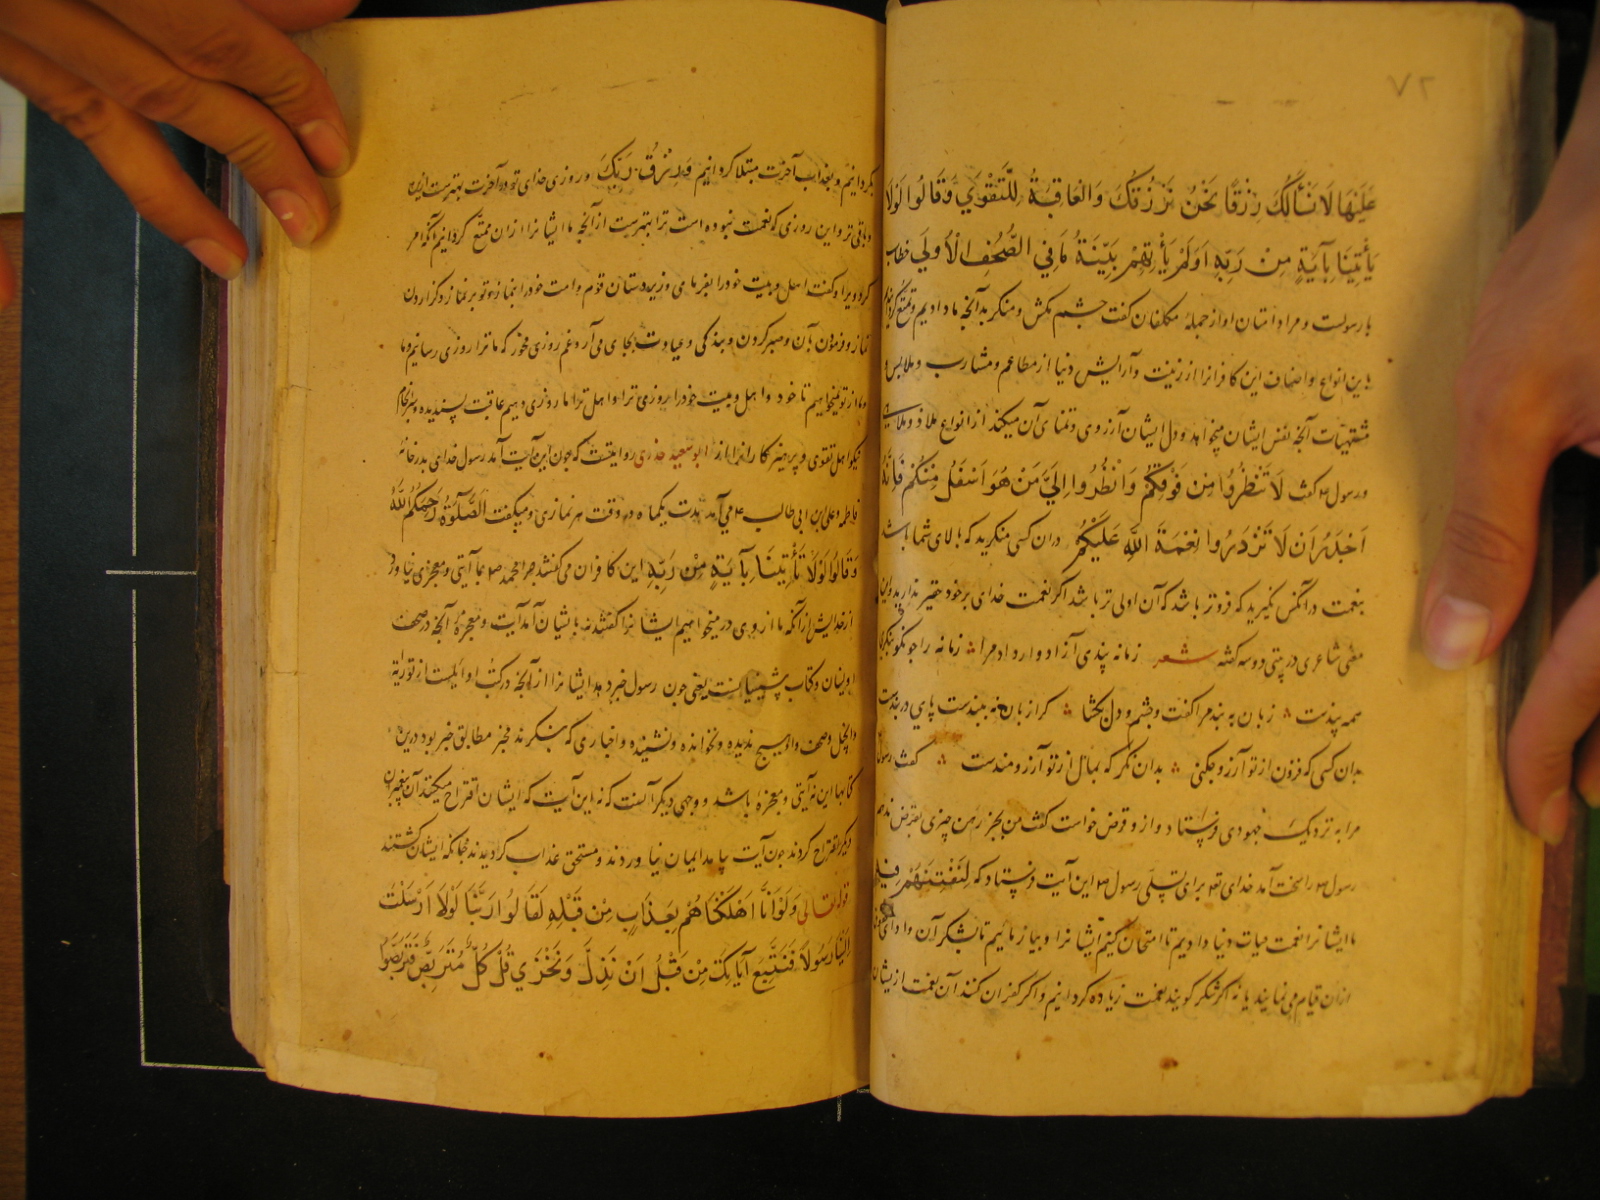 ۷۲
عَلَيْهَا لَا نَسْأَلُكَ رِزْقًا نَحْنُ نَرْزُقُكَ وَالْعَاقِبَةُ لِلتَّقْوَىٰ وَقَالُوا لَوْلَا
يَأْتِينَا بِآيَةٍ مِنْ رَبِّهِ أَوَلَمْ يَأْتِهِمْ بَيِّنَةُ مَا فِي الصُّحُفِ الْأُولَىٰ خطاب
با رسولست و مراد امتان او از جمله مکلفان کفت چشم مکش و منکر بدآنچه ما دادیم و تمتع
باین انواع و اصناف این کافرانرا از زینت و آرایش دنیا از مطاعم و مشارب و ملابس و
مشتهیات آنچه نفس ایشان میخواهد و دل ایشان آرزوی و تمنای آن میکند از انواع ملاذ و ملابس
و رسول ص کفت لَا تَنْظُرُوا مِنْ فَوْقِكُمْ وَانْظُرُوا إِلَىٰ مَنْ هُوَ أَسْفَلُ مِنْكُمْ فَإِنَّهُ
أَجْدَرُ أَنْ لَا تَزْدَرُوا نِعْمَةَ اللَّهِ عَلَيْكُمْ در آن کسی منکرید که بالای شما باشد
بنعمت در آنکس نکرید که فروتر باشد که آن اولی تر باشد اکر نعمت خدای بر خود حقیر ندارید و این
معنی شاعری در بیتی دو سه کفته شعر زمانه پندی آزادوار داد مرا زمانه را چو نکو بنکری
همه پندست زبان به بند مرا کفت و چشم و دل بکشا کرا زبان نه ببندست پای در بندست
بدان کسی که فزون از تو آرزو چکنی بدان نکر که بمال از تو آرزومندست کفت رسول
مرا به نزدیک جهودی فرستاد و از و قرض خواست کفت من بجز رهن چیزی بقرض ندهم
رسول ص را سخت آمد خدای تعه برای تسلی رسول ص این آیت فرستاد که لِنَفْتِنَهُمْ فِيهِ
ما ایشانرا نعمت حیات دنیا دادیم تا امتحان کنیم ایشانرا و بیازمائیم تا بشکر آن
از آن قیام می نمایند یا نه اکر شکر کویند نعمت زیاده کردانیم و اکر کفران کنند آن نعمت از یشان
بکردانیم و بعذاب آخرت مبتلا کردانیم وَرِزْقُ رَبِّكَ و روزی خدای تو در آخرت بهترست
و باقی تر و این روزی که نعمت نبوه است ترا بهترست از آنچه ما ایشانرا از آن ممتع کردانیم آنکه امر
کرد ویرا و کفت اهل و بیت خود را بفرمای و زیردستان قوم و امت خود را بنماز و تو بر نماز و کزاردن
نماز و فرمودن بآن و صبر کردن و بندکی و عبادت بجای می آر و غم روزی مخور که ما ترا روزی رسانیم و ما
از تو نمیخواهیم تا خود و اهل و بیت خود را روزی ترا و اهل ترا ما روزی دهیم عاقبت پسندیده و سرانجام
نیکو اهل تقوی و پرهیزکارانرا از ابو سعید خدری روایتست که چون این آیت آمد رسول خدای بدر خانهٔ
فاطمه و علی بن ابی طالب ع می آمد مدت یکماه در وقت هر نمازی و میکفت الصَّلَوٰةَ رَحِمَكُمُ اللَّهُ
وَقَالُوا لَوْلَا يَأْتِينَا بِآيَةٍ مِنْ رَبِّهِ این کافران می کفتند چرا محمد ص بما آیتی و معجزی نیاورد
از خدایش از آنکه ما از وی در میخواهیم ایشانرا کفتند نه با یشان آمد آیت و معجزهٔ آنچه در صحف
اولیان و کتاب پیشینیانست یعنی چون رسول خبر دهد ایشانرا از آنچه در کتب اوایلست از توریة
و انجیل و صحف و او هیچ ندیده و نخوانده و نشنیده و اخباری که بنکرند مخبر مطابق خبر بود درین
کتابها این نه آیتی و معجزهٔ باشد و وجهی دیکر آنست که نه این آیت که ایشان اقتراح میکنند از پیغمبران
دیکر اقتراح کردند چون آیت بیامد ایمان نیاوردند و مستحق عذاب کردیدند چنانکه ایشان کشتند
قوله تعالی وَلَوْ أَنَّا أَهْلَكْنَاهُمْ بِعَذَابٍ مِنْ قَبْلِهِ لَقَالُوا رَبَّنَا لَوْلَا أَرْسَلْتَ
إِلَيْنَا رَسُولًا فَنَتَّبِعَ آيَاتِكَ مِنْ قَبْلِ أَنْ نَذِلَّ وَنَخْزَىٰ قُلْ كُلٌّ مُتَرَبِّصٌ فَتَرَبَّصُوا